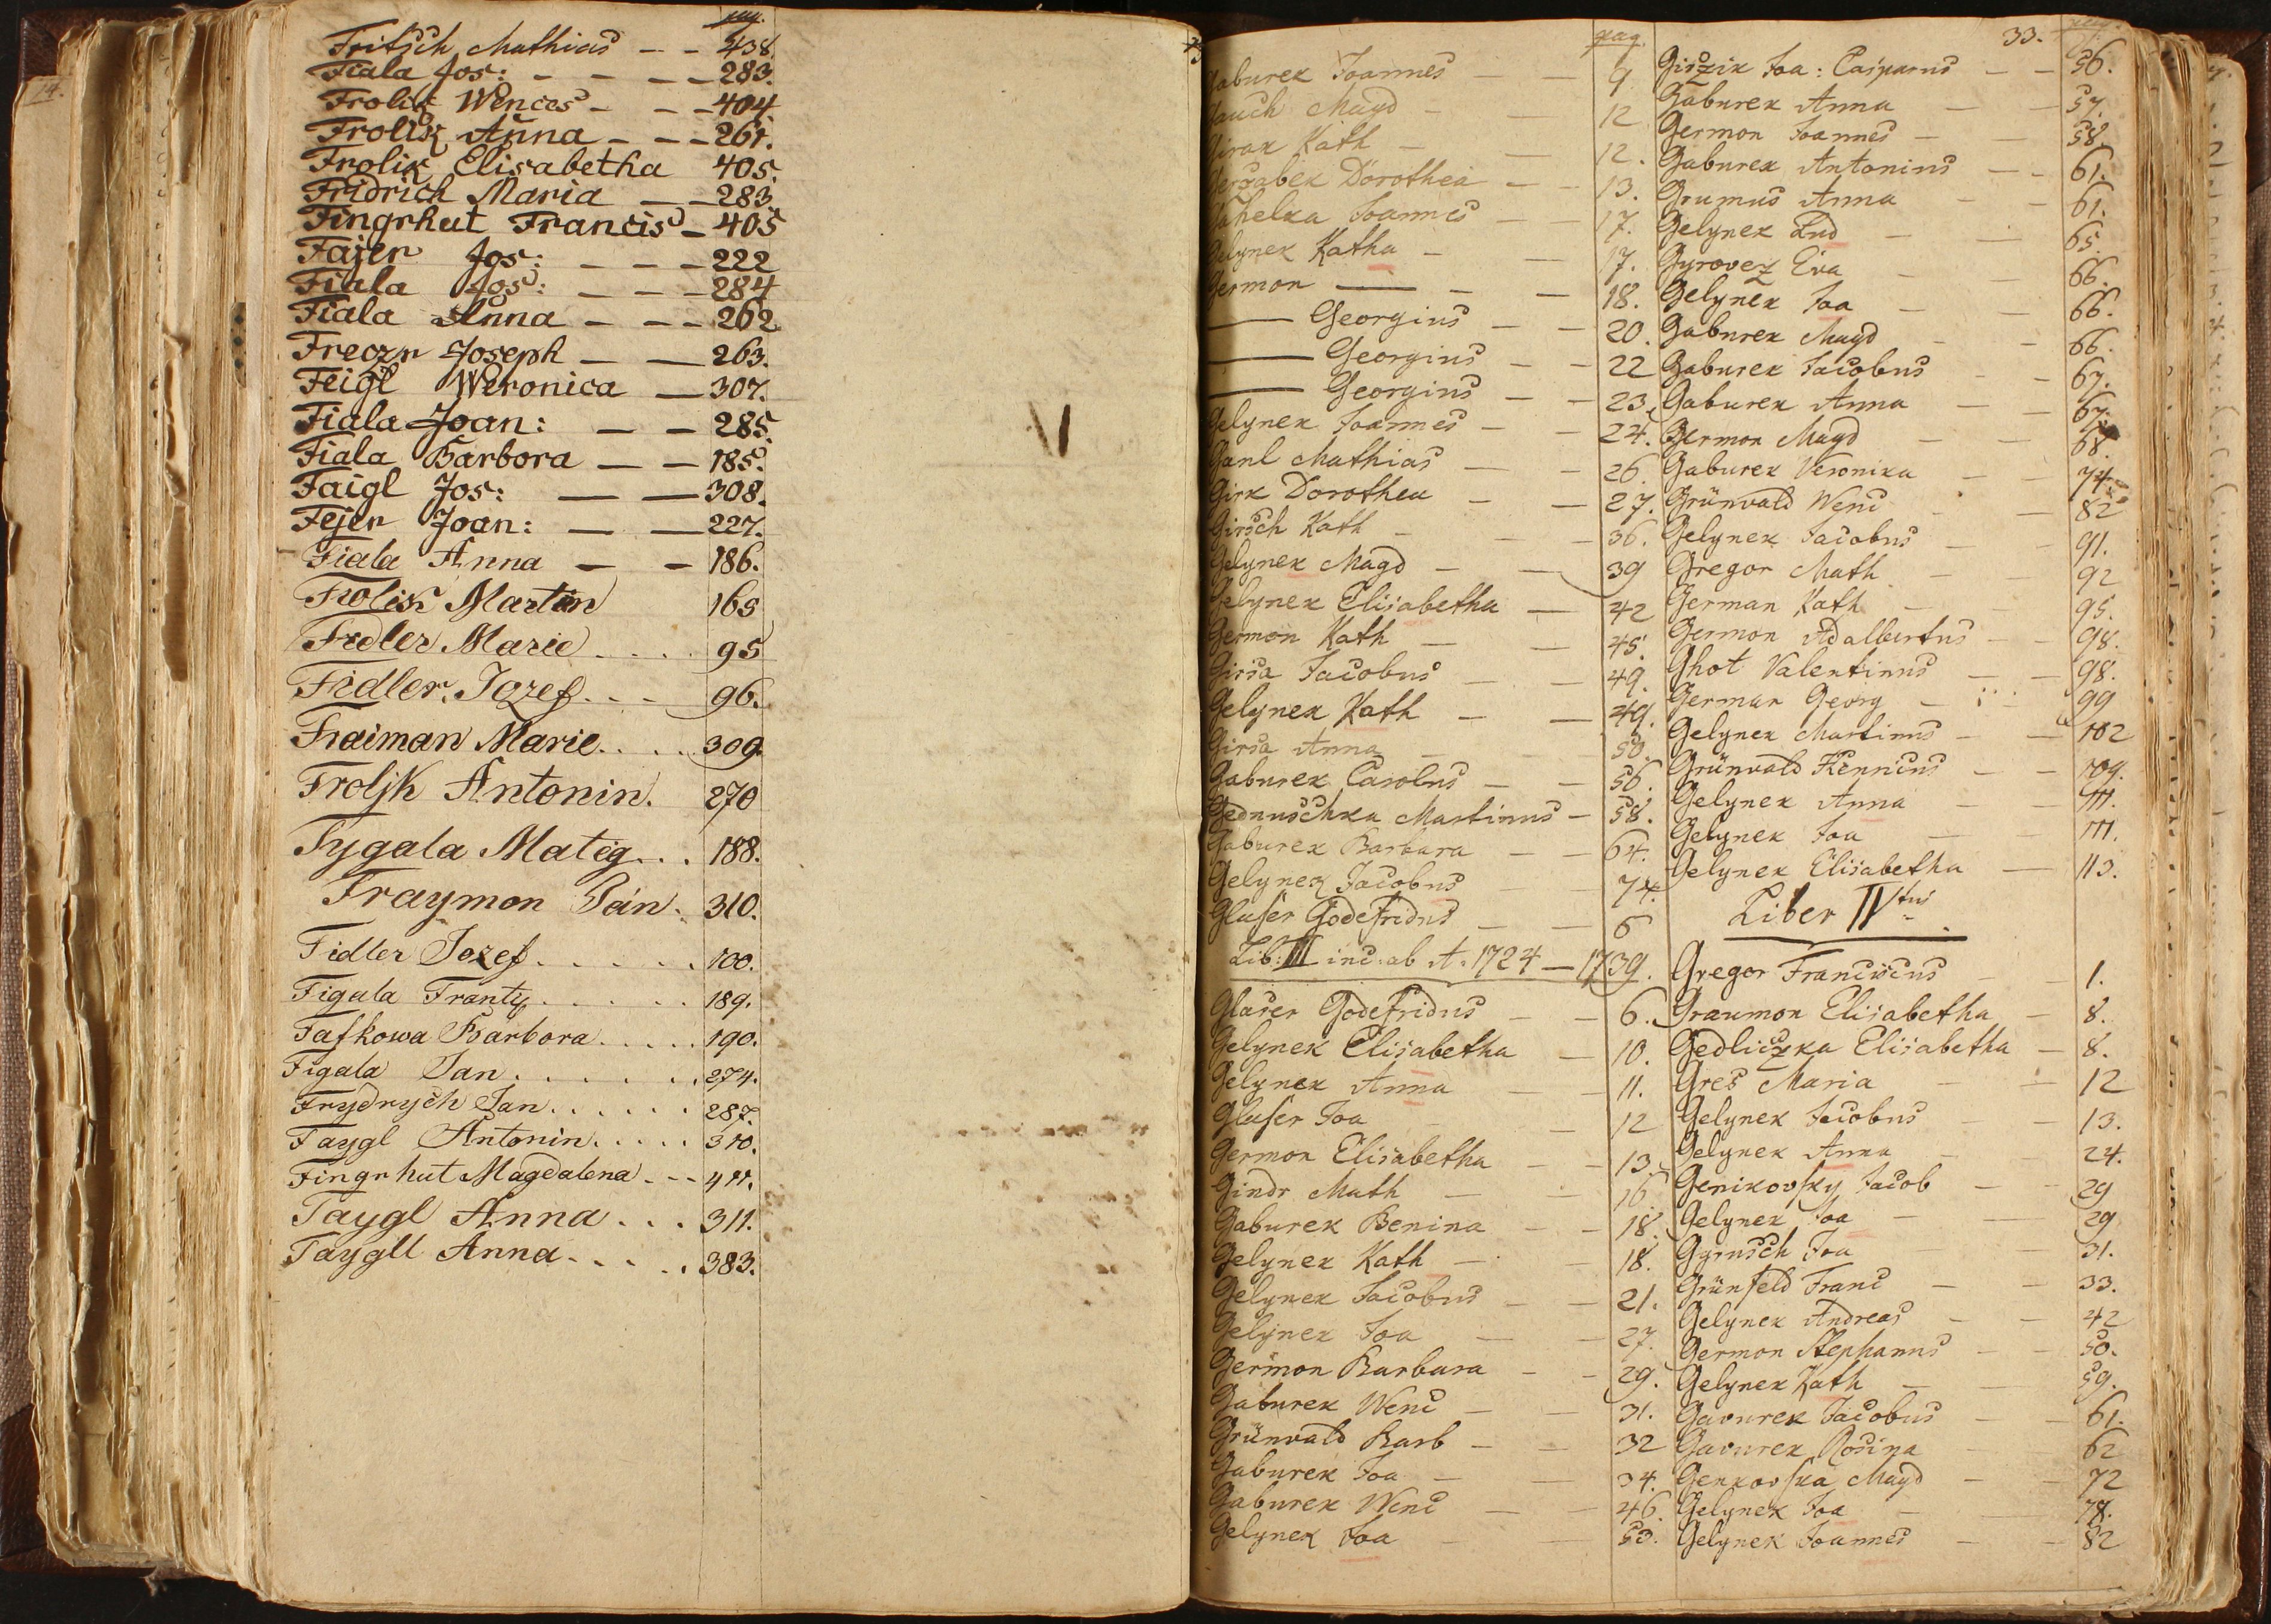 pag.
Fritsch Mathias - - 438.
Fiala Jos: - - - - 283.
Frolik Wences - - - 404
Frolik Anna - - - 261.
Frolik Elisabetha 405.
Fridrich Maria - - 283.
Fingrhut Francis - 405
Fajer Jos: - - - 222
Fiala Jos: - - - 284
Fiala Anna - - - 262
Joseph - - 263.
Feigl Weronica - 307.
Fiala Joan: - - 285.
Fiala Barbora - - 185.
Faigl Jos: - - 308.
Fejer Joan: - - 227.
Fiala Anna - - 186.
Frolik Martin 165
Fidler Marie .... 95
Fidler Jozef - - - 96.
Fraiman Marie .... 309.
Froljk Antonin. 270
Fygala Mateg... 188.
Fraymon Pán. 310.
Fidler Jozef ..... 100.
Figala Franty ..... 189.
Fafkowa Barbora ..... 190.
Figala Jan ...... 274.
Frydrych Jan ...... 287.
Faygl Antonin ..... 310.
Fingrhut Magdalena - - - 411.
Faygl Anna ... 311.
Faygll Anna ..... 383.
pag.
Gaburek Joannes - - 9
Gauch Magd - - 12
Girak Kath - - 12.
Dorothea - - 13.
Joannes - - 17.
Gelynek Katha - - 17.
Germon - - - 18.
- Georgius - - 20.
- Georgius - - 22
- Georgius - - 23.
Gelynek Joannes - - 24.
Ganl Mathias - - 26
Girk Dorothea - - 27.
Girsch Kath - - 36.
Gelynek Magd - - 39
Gelynek Elisabetha - 42
Germon Kath - - 45.
Girsa Jacobus - - 49.
Gelynek Kath - - 49.
Girsa Anna - - 50.
Gaburek Carolus - - 56.
Gednuschka Martinus - 58.
Gaburek Barbara - - 64.
Gelynek Jacobus - - 74.
Glaser Godefridus - - 6
Lib: III inc. ab A. 1724 - 1739.
Glaser Godefridus - - 6.
Gelynek Elisabetha - 10.
Gelynek Anna - - 11.
Glaser Joa - - 12
Germon Elisabetha - - 13.
Gindr Math - - 16
Gaburek Benina - - 18.
Gelynek Kath - - 18.
Gelynek Jacobus - - 21.
Gelynek Joa - - 27.
Germon Barbara - - 29.
Gaburek Wenc - - 31.
Grünwald Barb - - 32
Gaburek Joa - - 34.
Gaburek Wenc - - 46.
Gelynek Joa - - 53.
33. pag.
Giszik Joa: Casparus - - 56.
Gaburek Anna - - 57.
Germon Joannes - - 58.
Gaburek Antonius - - 61.
Grumus Anna - - 61.
Gelynek Lud - - 65.
Gyrovez Eva - - 66.
Gelynek Joa - - 66.
Gaburek Magd - - 66.
Gaburek Jacobus - - 67.
Gaburek Anna - - 67.
Germon Magd - - 68.
Gaburek Veronika - - 74.
Grünvald Wenc - 82
Gelynek Jacobus - - 91.
Gregor Math - - 92
German Kath - 95.
Germon Adalbertus - - 98.
Ghot Valentinus - - 98.
German Georg - 99
Gelynek Martinus - - 102
Grünvald - - 109.
Gelynek Anna - - 111.
Gelynek Joa - - 111.
Gelynek Elisabetha - 113.
Liber IVtus
Gregor Franciscus - - 1.
Graumon Elisabetha - 8.
Gedliczka Elisabetha - 8.
Gres Maria - - 12
Gelynek Jacobus - - 13.
Gelynek Anna - - 24.
Genikovsky Jacob - - 29
Gelynek Joa - - 29
Gyrusch Joa - - 31.
Grünfeld Franc - - 33.
Gelynek Andreas - - 42
Germon Stephanus - - 50.
Gelynek Kath - - 59.
Gavurek Jacobus - - 61.
Gavurek Rosina - - 62
Genkovska Magd - - 72
Gelynek Joa - - 78.
Gelynek Joannes - - 82